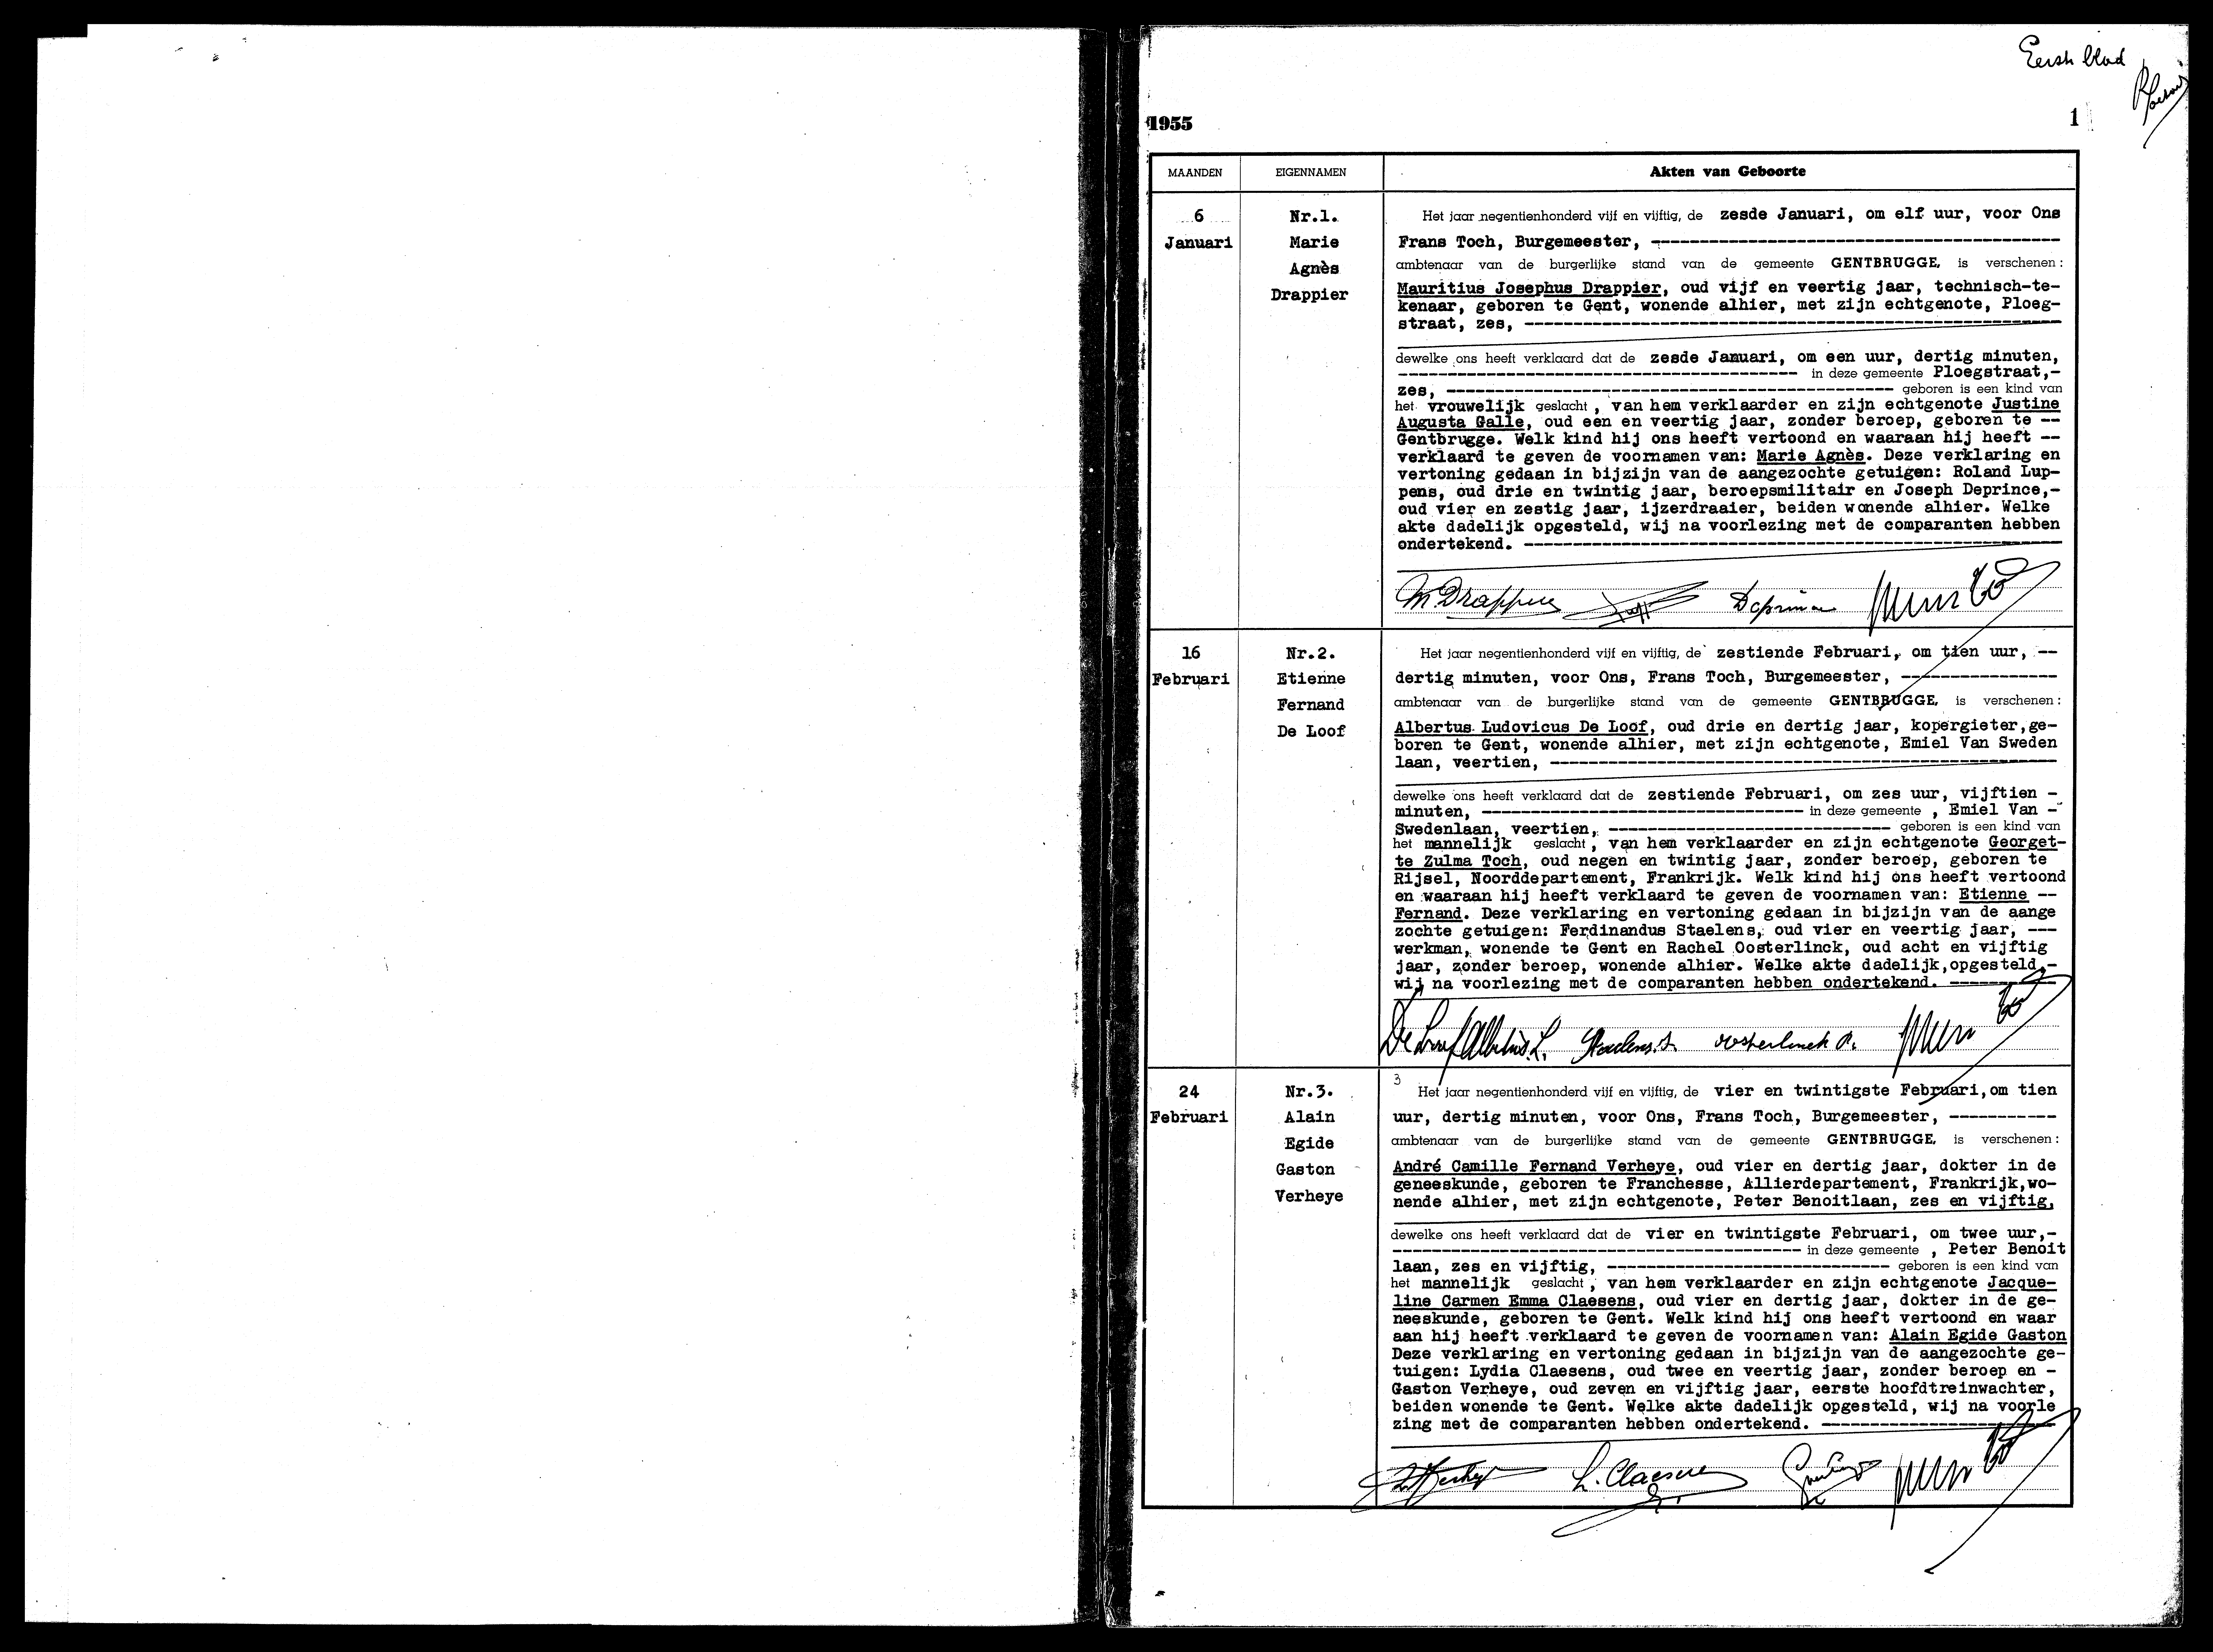 Eerste blad
1955
1
MAANDEN
EIGENNAMEN
Akten van Geboorte
6
Januari
Nr.1.
Marie
Agnès
Drappier
Het jaar negentienhonderd vijf en vijftig, de zesde Januari, om elf uur, voor Ons
Frans Toch, Burgemeester, ------------------------------------------
ambtenaar van de burgerlijke stand van de gemeente GENTBRUGGE, is verschenen:
Mauritius Josephus Drappier, oud vijf en veertig jaar, technisch-te-
kenaar, geboren te Gent, wonende alhier, met zijn echtgenote, Ploeg-
straat, zes, -------------------------------------------------------
dewelke ons heeft verklaard dat de zesde Januari, om een uur, dertig minuten,
----------------------------------------- in deze gemeente Ploegstraat,-
zes, ---------------------------------------------- geboren is een kind van
het vrouwelijk geslacht, van hem verklaarder en zijn echtgenote Justine
Augusta Galle, oud een en veertig jaar, zonder beroep, geboren te --
Gentbrugge. Welk kind hij ons heeft vertoond en waaraan hij heeft --
verklaard te geven de voornamen van: Marie Agnès. Deze verklaring en
vertoning gedaan in bijzijn van de aangezochte getuigen: Roland Lup-
pens, oud drie en twintig jaar, beroepsmilitair en Joseph Deprince,-
oud vier en zestig jaar, ijzerdraaier, beiden wonende alhier. Welke
akte dadelijk opgesteld, wij na voorlezing met de comparanten hebben
ondertekend. -------------------------------------------------------
M. Drappier
16
Februari
Nr.2.
Etienne
Fernand
De Loof
Het jaar negentienhonderd vijf en vijftig, de zestiende Februari, om tien uur, --
dertig minuten, voor Ons, Frans Toch, Burgemeester, ----------------
ambtenaar van de burgerlijke stand van de gemeente GENTBRUGGE, is verschenen:
Albertus Ludovicus De Loof, oud drie en dertig jaar, kopergieter,ge-
boren te Gent, wonende alhier, met zijn echtgenote, Emiel Van Sweden
laan, veertien, ----------------------------------------------------
dewelke ons heeft verklaard dat de zestiende Februari, om zes uur, vijftien -
minuten, --------------------------------- in deze gemeente , Emiel Van -
Swedenlaan, veertien, ----------------------------- geboren is een kind van
het mannelijk geslacht, van hem verklaarder en zijn echtgenote Georget-
te Zulma Toch, oud negen en twintig jaar, zonder beroep, geboren te
Rijsel, Noorddepartement, Frankrijk. Welk kind hij ons heeft vertoond
en waaraan hij heeft verklaard te geven de voornamen van: Etienne --
Fernand. Deze verklaring en vertoning gedaan in bijzijn van de aange
zochte getuigen: Ferdinandus Staelens, oud vier en veertig jaar, ---
werkman, wonende te Gent en Rachel Oosterlinck, oud acht en vijftig
jaar, zonder beroep, wonende alhier. Welke akte dadelijk,opgesteld,-
wij na voorlezing met de comparanten hebben ondertekend. -----------
De Loof Albertus. L. Staelens. oosterlinck R.
24
Februari
Nr.3.
Alain
Egide
Gaston
Verheye
3
Het jaar negentienhonderd vijf en vijftig, de vier en twintigste Februari,om tien
uur, dertig minuten, voor Ons, Frans Toch, Burgemeester, -----------
ambtenaar van de burgerlijke stand van de gemeente GENTBRUGGE, is verschenen:
André Camille Fernand Verheye, oud vier en dertig jaar, dokter in de
geneeskunde, geboren te Franchesse, Allierdepartement, Frankrijk,wo-
nende alhier, met zijn echtgenote, Peter Benoitlaan, zes en vijftig,
dewelke ons heeft verklaard dat de vier en twintigste Februari, om twee uur,-
------------------------------------------ in deze gemeente , Peter Benoit
laan, zes en vijftig, ----------------------------- geboren is een kind van
het mannelijk geslacht, van hem verklaarder en zijn echtgenote Jacque-
line Carmen Emma Claesens, oud vier en dertig jaar, dokter in de ge-
neeskunde, geboren te Gent. Welk kind hij ons heeft vertoond en waar
aan hij heeft verklaard te geven de voornamen van: Alain Egide Gaston
Deze verklaring en vertoning gedaan in bijzijn van de aangezochte ge-
tuigen: Lydia Claesens, oud twee en veertig jaar, zonder beroep en -
Gaston Verheye, oud zeven en vijftig jaar, eerste hoofdtreinwachter,
beiden wonende te Gent. Welke akte dadelijk opgesteld, wij na voorle
zing met de comparanten hebben ondertekend. ------------------------
L. Claesens